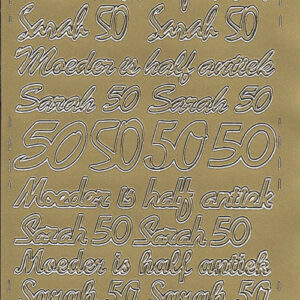 Sarah 50 Sarah 50
Moeder is half antiek
Sarah 50 Sarah 50
50 50 50 50
Moeder is half antiek
Sarah 50 Sarah 50
Moeder is half antiek
Sarah 50 Sarah 50